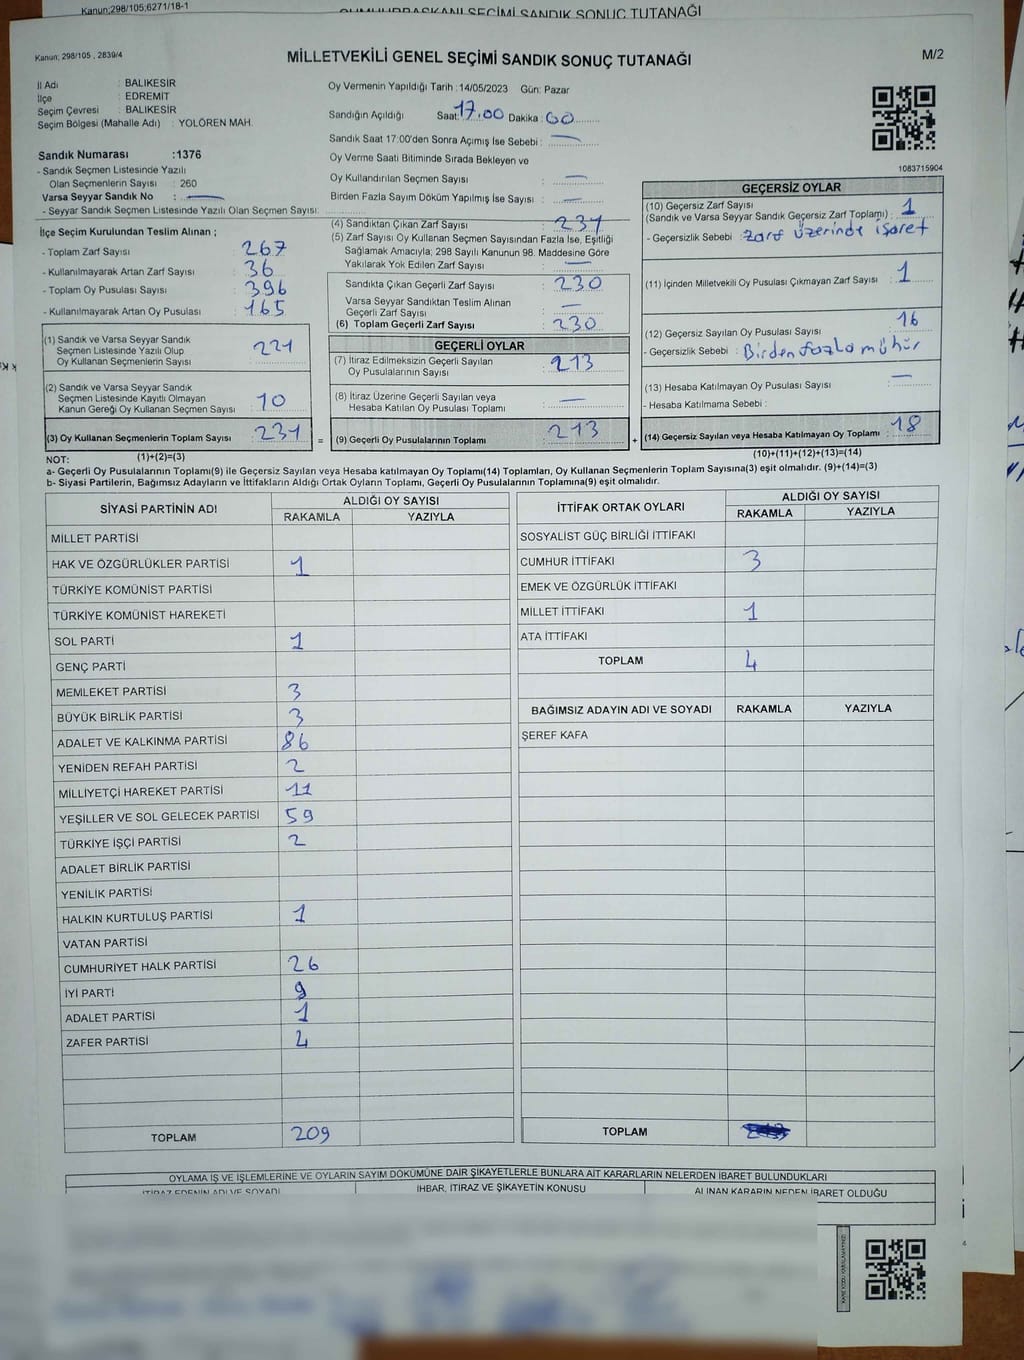 Kanun;298/105;6271/18-1
CUMHURBAŞKANI SEÇİMİ SANDIK SONUÇ TUTANAĞI
Kanun; 298/105 , 2839/4
MİLLETVEKİLİ GENEL SEÇİMİ SANDIK SONUÇ TUTANAĞI
M/2
İl Adı : BALIKESİR
İlçe : EDREMIT
Seçim Çevresi : BALIKESİR
Seçim Bölgesi (Mahalle Adı) : YOLÖREN MAH.
Sandık Numarası :1376
- Sandık Seçmen Listesinde Yazılı
Olan Seçmenlerin Sayısı : 260
Varsa Seyyar Sandık No : —
- Seyyar Sandık Seçmen Listesinde Yazılı Olan Seçmen Sayısı:
Oy Vermenin Yapıldığı Tarih :14/05/2023 Gün: Pazar
Sandığın Açıldığı Saat: 17.00 Dakika : 00
Sandık Saat 17:00'den Sonra Açımış İse Sebebi : —
Oy Verme Saati Bitiminde Sırada Bekleyen ve
Oy Kullandırılan Seçmen Sayısı : —
Birden Fazla Sayım Döküm Yapılmış İse Sayısı : —
1083715904
İlçe Seçim Kurulundan Teslim Alınan ;
- Toplam Zarf Sayısı : 267
- Kullanılmayarak Artan Zarf Sayısı : 36
- Toplam Oy Pusulası Sayısı : 396
- Kullanılmayarak Artan Oy Pusulası : 165
(1) Sandık ve Varsa Seyyar Sandık
Seçmen Listesinde Yazılı Olup
Oy Kullanan Seçmenlerin Sayısı : 221
(2) Sandık ve Varsa Seyyar Sandık
Seçmen Listesinde Kayıtlı Olmayan
Kanun Gereği Oy Kullanan Seçmen Sayısı : 10
(3) Oy Kullanan Seçmenlerin Toplam Sayısı : 231
(4) Sandıktan Çıkan Zarf Sayısı : 231
(5) Zarf Sayısı Oy Kullanan Seçmen Sayısından Fazla İse, Eşitliği
Sağlamak Amacıyla; 298 Sayılı Kanunun 98. Maddesine Göre
Yakılarak Yok Edilen Zarf Sayısı : —
Sandıkta Çıkan Geçerli Zarf Sayısı : 230
Varsa Seyyar Sandıktan Teslim Alınan
Geçerli Zarf Sayısı : —
(6) Toplam Geçerli Zarf Sayısı : 230
GEÇERLİ OYLAR
(7) İtiraz Edilmeksizin Geçerli Sayılan
Oy Pusulalarının Sayısı : 213
(8) İtiraz Üzerine Geçerli Sayılan veya
Hesaba Katılan Oy Pusulası Toplamı : —
= (9) Geçerli Oy Pusulalarının Toplamı : 213
GEÇERSİZ OYLAR
(10) Geçersiz Zarf Sayısı
(Sandık ve Varsa Seyyar Sandık Geçersiz Zarf Toplamı) : 1
- Geçersizlik Sebebi : Zarf üzerinde işaret
(11) İçinden Milletvekili Oy Pusulası Çıkmayan Zarf Sayısı : 1
(12) Geçersiz Sayılan Oy Pusulası Sayısı : 16
- Geçersizlik Sebebi : Birden fazla mühür
(13) Hesaba Katılmayan Oy Pusulası Sayısı : —
- Hesaba Katılmama Sebebi :
+ (14) Geçersiz Sayılan veya Hesaba Katılmayan Oy Toplamı : 18
NOT: (1)+(2)=(3)
(10)+(11)+(12)+(13)=(14)
a- Geçerli Oy Pusulalarının Toplamı(9) ile Geçersiz Sayılan veya Hesaba katılmayan Oy Toplamı(14) Toplamları, Oy Kullanan Seçmenlerin Toplam Sayısına(3) eşit olmalıdır. (9)+(14)=(3)
b- Siyasi Partilerin, Bağımsız Adayların ve İttifakların Aldığı Ortak Oyların Toplamı, Geçerli Oy Pusulalarının Toplamına(9) eşit olmalıdır.
SİYASİ PARTİNİN ADI ALDIĞI OY SAYISI
RAKAMLA YAZIYLA
MİLLET PARTİSİ
HAK VE ÖZGÜRLÜKLER PARTİSİ 1
TÜRKİYE KOMÜNİST PARTİSİ
TÜRKİYE KOMÜNİST HAREKETİ
SOL PARTİ 1
GENÇ PARTİ
MEMLEKET PARTİSİ 3
BÜYÜK BİRLİK PARTİSİ 3
ADALET VE KALKINMA PARTİSİ 86
YENİDEN REFAH PARTİSİ 2
MİLLİYETÇİ HAREKET PARTİSİ 11
YEŞİLLER VE SOL GELECEK PARTİSİ 59
TÜRKİYE İŞÇİ PARTİSİ 2
ADALET BİRLİK PARTİSİ
YENİLİK PARTİSİ
HALKIN KURTULUŞ PARTİSİ 1
VATAN PARTİSİ
CUMHURİYET HALK PARTİSİ 26
İYİ PARTİ 9
ADALET PARTİSİ 1
ZAFER PARTİSİ 4
TOPLAM 209
İTTİFAK ORTAK OYLARI ALDIĞI OY SAYISI
RAKAMLA YAZIYLA
SOSYALİST GÜÇ BİRLİĞİ İTTİFAKI
CUMHUR İTTİFAKI 3
EMEK VE ÖZGÜRLÜK İTTİFAKI
MİLLET İTTİFAKI 1
ATA İTTİFAKI
TOPLAM 4
BAĞIMSIZ ADAYIN ADI VE SOYADI RAKAMLA YAZIYLA
ŞEREF KAFA
TOPLAM
OYLAMA İŞ VE İŞLEMLERİNE VE OYLARIN SAYIM DÖKÜMÜNE DAİR ŞİKAYETLERLE BUNLARA AİT KARARLARIN NELERDEN İBARET BULUNDUKLARI
İTİRAZ EDENİN ADI VE SOYADI İHBAR, İTİRAZ VE ŞİKAYETİN KONUSU ALINAN KARARIN NEDEN İBARET OLDUĞU